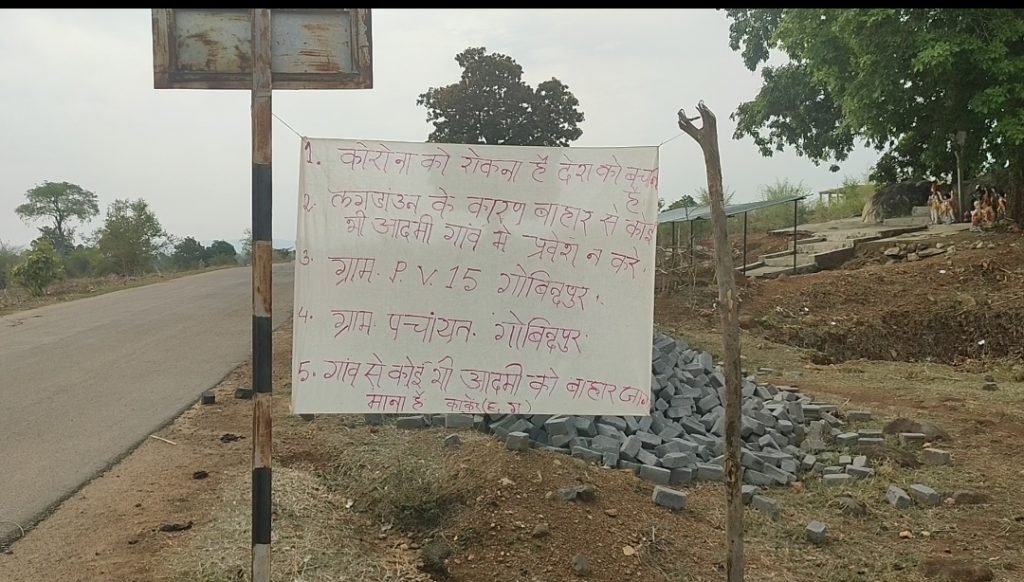 1. कोरोना को रोकना है देश को बचाना
है
2. लगडांउन के कारण बाहार से कोई
भी आदमी गांव मे प्रवेश न करे.
3. ग्राम. P. V. 15 गोबिन्दपुर.
4. ग्राम. पन्चांयत. गोबिन्दपुर.
5. गांव से कोई भी आदमी को बाहार जाना
माना है कांकेर (छ. ग)